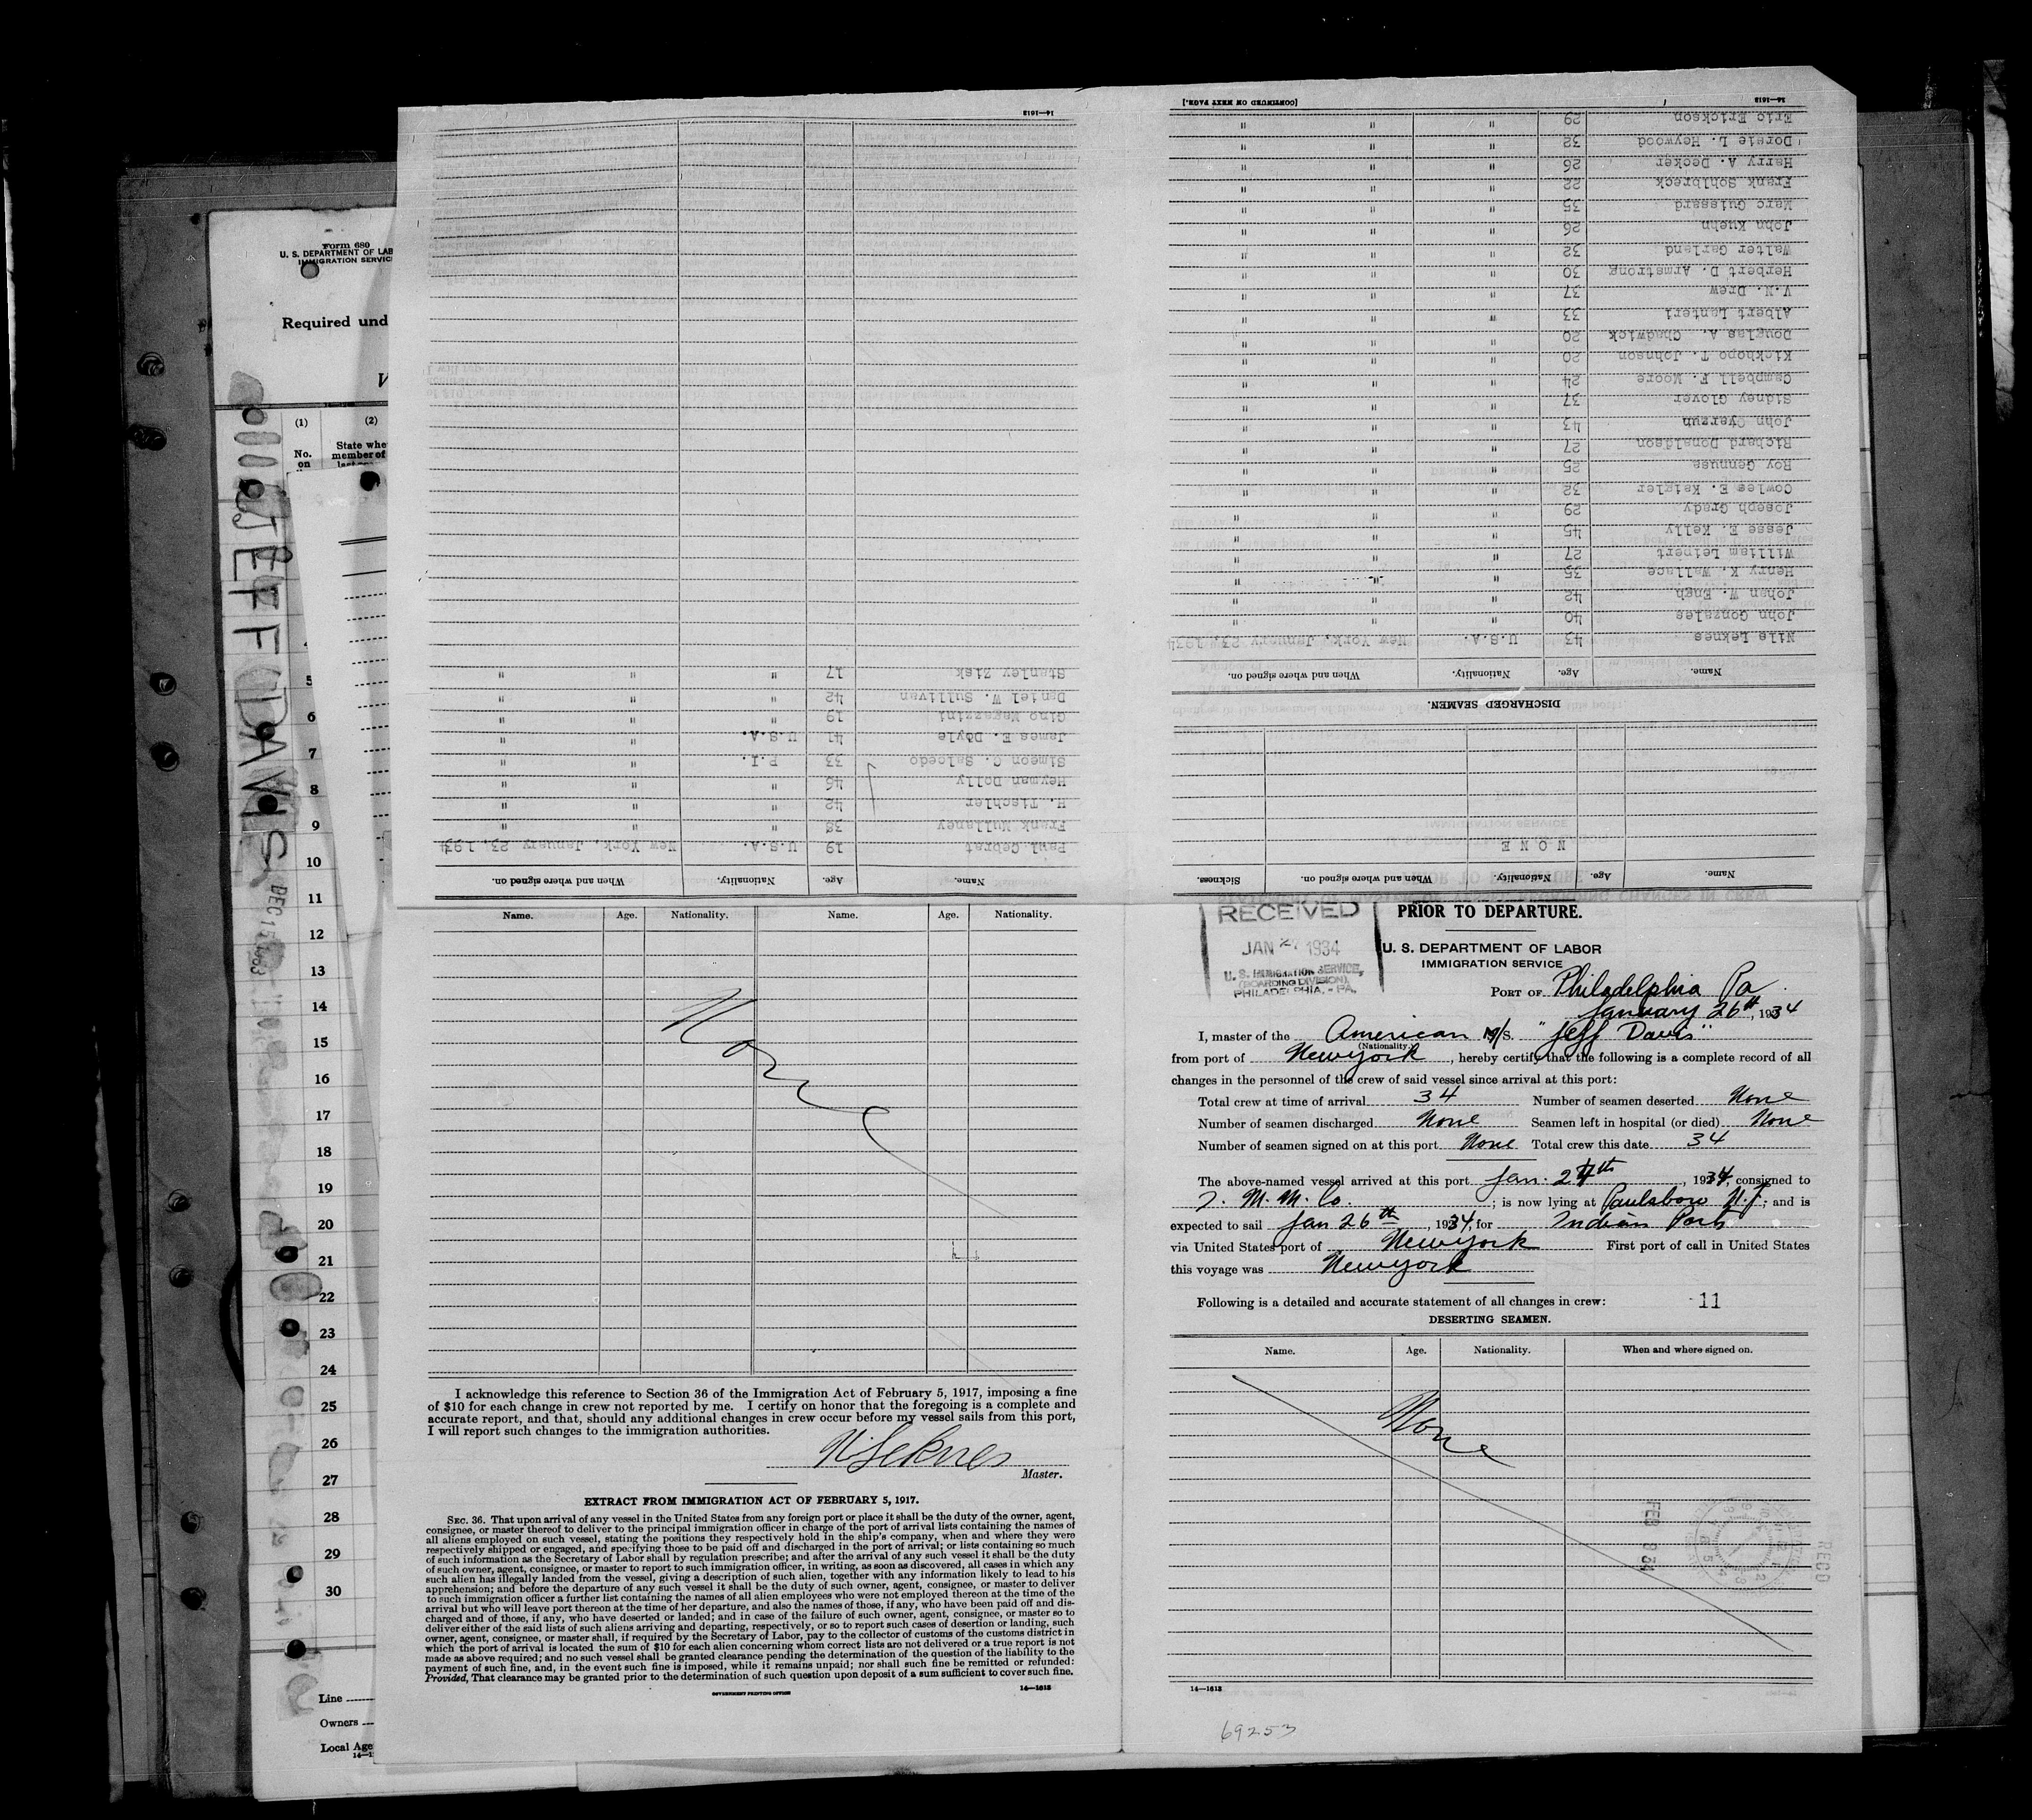 Form 680
U. S. DEPARTMENT OF LAB
IMMIGRATION SERVIC
Required und
(1) (2)
No. on
State whe
member of
JEFF DAVIS
5
6
7
8
9
10
11
12
13
14
15
16
17
18
19
20
21
22
23
24
25
26
27
28
29
30
Line
Owners
Local Age
PRIOR TO DEPARTURE.
RECEIVED
JAN 27 1934
U. S. IMMIGRATION SERVICE,
(BOARDING DIVISION),
PHILADELPHIA, - PA.
U. S. DEPARTMENT OF LABOR
IMMIGRATION SERVICE
PORT OF Philadelphia Pa.
January 26th, 1934
I, master of the American M/S. "Jeff Davis"
(Nationality.)
from port of Newyork, hereby certify that the following is a complete record of all
changes in the personnel of the crew of said vessel since arrival at this port:
Total crew at time of arrival 34 Number of seamen deserted None
Number of seamen discharged None Seamen left in hospital (or died) None
Number of seamen signed on at this port None Total crew this date 34
The above-named vessel arrived at this port Jan. 24th, 1934, consigned to
I. M. M. Co.; is now lying at Paulsboro N.J.; and is
expected to sail Jan 26th, 1934, for Indian Ports
via United States port of Newyork First port of call in United States
this voyage was Newyork
Following is a detailed and accurate statement of all changes in crew: -11
DESERTING SEAMEN.
Name. Age. Nationality. When and where signed on.
None
FEB 8 934
RECD
14—1613
69253
[CONTINUED ON NEXT PAGE.] 14—1613
Name. Age. Nationality. When and where signed on. Sickness.
NONE
DISCHARGED SEAMEN.
Name. Age. Nationality. When and where signed on.
Nils Leknes 43 U.S.A. New York, January 23, 1934
John Gonzales 40 " " "
Johan W. Engh 42 " " "
Henry K. Wallace 35 " " "
William Leinert 27 " " "
Jesse E. Kelly 45 " " "
Joseph Grady 29 " " "
Cowles E. Kaigler 32 " " "
Roy Gennusa 25 " " "
Richard Donaldson 27 " " "
John Overzyn 43 " " "
Sidney Glover 37 " " "
Campbell F. Moore 24 " " "
Kickhopo T. Johnson 20 " " "
Douglas A. Chadwick 20 " " "
Albert Lanteri 33 " " "
V.N. Drew 37 " " "
Herbert D. Armstrong 30 " " "
Walter Garland 32 " " "
John Kuehn 26 " " "
Marc Guissard 35 " " "
Frank Sohlbreck 22 " " "
Harry A. Decker 26 " " "
Dorsie L. Heywood 32 " " "
Eric Erickson 29 " " "
Name. Age. Nationality. When and where signed on.
Paul Cebrat 19 U.S.A. New York, January 23, 1934
Frank Mullaney 38 " " "
H. Tischler 42 " " "
Heyman Dolly 46 " " "
Simeon C. Salcedo 33 P.I. " "
James E. Doyle 41 U.S.A. " "
Gino Magazzini 19 " " "
Daniel W. Sullivan 42 " " "
Stanley Zisk 17 " " "
14—1613
Name. Age. Nationality. Name. Age. Nationality.
None
I acknowledge this reference to Section 36 of the Immigration Act of February 5, 1917, imposing a fine
of $10 for each change in crew not reported by me. I certify on honor that the foregoing is a complete and
accurate report, and that, should any additional changes in crew occur before my vessel sails from this port,
I will report such changes to the immigration authorities.
N. Leknes
Master.
EXTRACT FROM IMMIGRATION ACT OF FEBRUARY 5, 1917.
SEC. 36. That upon arrival of any vessel in the United States from any foreign port or place it shall be the duty of the owner, agent,
consignee, or master thereof to deliver to the principal immigration officer in charge of the port of arrival lists containing the names of
all aliens employed on such vessel, stating the positions they respectively hold in the ship's company, when and where they were
respectively shipped or engaged, and specifying those to be paid off and discharged in the port of arrival; or lists containing so much
of such information as the Secretary of Labor shall by regulation prescribe; and after the arrival of any such vessel it shall be the duty
of such owner, agent, consignee, or master to report to such immigration officer, in writing, as soon as discovered, all cases in which any
such alien has illegally landed from the vessel, giving a description of such alien, together with any information likely to lead to his
apprehension; and before the departure of any such vessel it shall be the duty of such owner, agent, consignee, or master to deliver
to such immigration officer a further list containing the names of all alien employees who were not employed thereon at the time of the
arrival but who will leave port thereon at the time of her departure, and also the names of those, if any, who have been paid off and dis-
charged and of those, if any, who have deserted or landed; and in case of the failure of such owner, agent, consignee, or master so to
deliver either of the said lists of such aliens arriving and departing, respectively, or so to report such cases of desertion or landing, such
owner, agent, consignee, or master shall, if required by the Secretary of Labor, pay to the collector of customs of the customs district in
which the port of arrival is located the sum of $10 for each alien concerning whom correct lists are not delivered or a true report is not
made as above required; and no such vessel shall be granted clearance pending the determination of the question of the liability to the
payment of such fine, and, in the event such fine is imposed, while it remains unpaid; nor shall such fine be remitted or refunded:
Provided, That clearance may be granted prior to the determination of such question upon deposit of a sum sufficient to cover such fine.
GOVERNMENT PRINTING OFFICE 14—1613